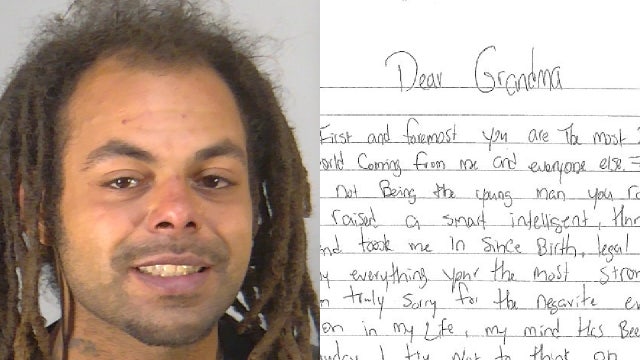 Dear Grandma
First and foremost you are The most
orld Coming from me and everyone else.
not Being the young man you ra
raised a smart intelligent,
nd took me In Since Birth, legal
y everything your the most Stron
truly Sorry for the Negative ev
en in my Life, my mind Has Bee
I try Not to think on